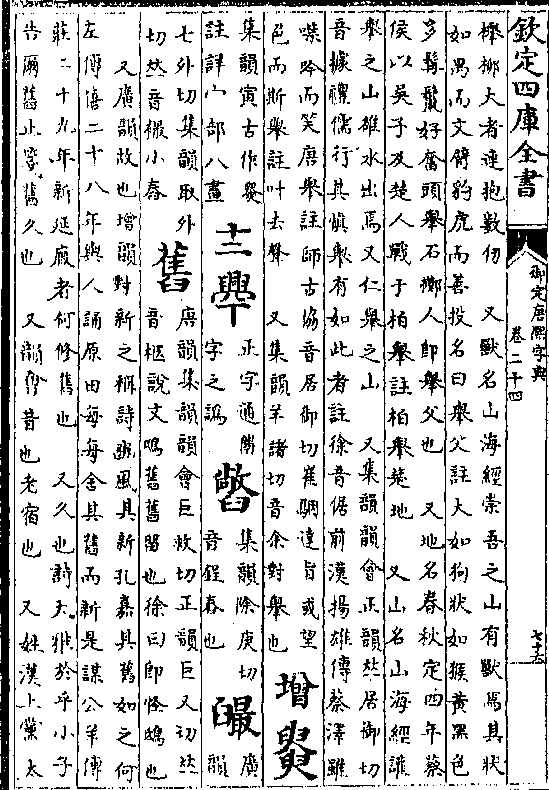 欽定四庫全書
御定康熙字典
卷二十四
櫸柳大者連抱數仞 又獸名山海經崇吾之山有獸焉其狀
如禺而文臂豹虎而善投名曰舉父註大如狗狀如猴黃黑色
多髯鬣好奮頭舉石擲人即舉父也 又地名春秋定四年蔡
侯以吳子及楚人戰于柏舉註柏舉楚地 又山名山海經讙
舉之山雒水出焉又仁舉之山 又集韻韻會正韻𠀤居御切
音據禮儒行其慎舉有如此者註徐音倨前漢揚雄傳蔡澤雖
噤吟而笑唐舉註師古協音居御切崔駰達旨或望
色而斯舉註叶去聲 又集韻羊諸切音余對舉也 增
集韻寅古作
註詳宀部八畫 十三 正字通
字之譌 集韻除庚切
音鋥舂也 廣韻
七外切集韻取外
切𠀤音襊小舂 舊 唐韻集韻韻會巨救切正韻巨又切𠀤
音柩說文鴟舊舊留也徐曰即怪鴟也
又廣韻故也增韻對新之稱詩豳風其新孔嘉其舊如之何
左傳僖二十八年輿人誦原田每每舍其舊而新是謀公羊傳
莊二十九年新延廄者何修舊也 又久也詩大雅於乎小子
告爾舊止箋舊久也 又韻會昔也老宿也 又姓漢上黨太